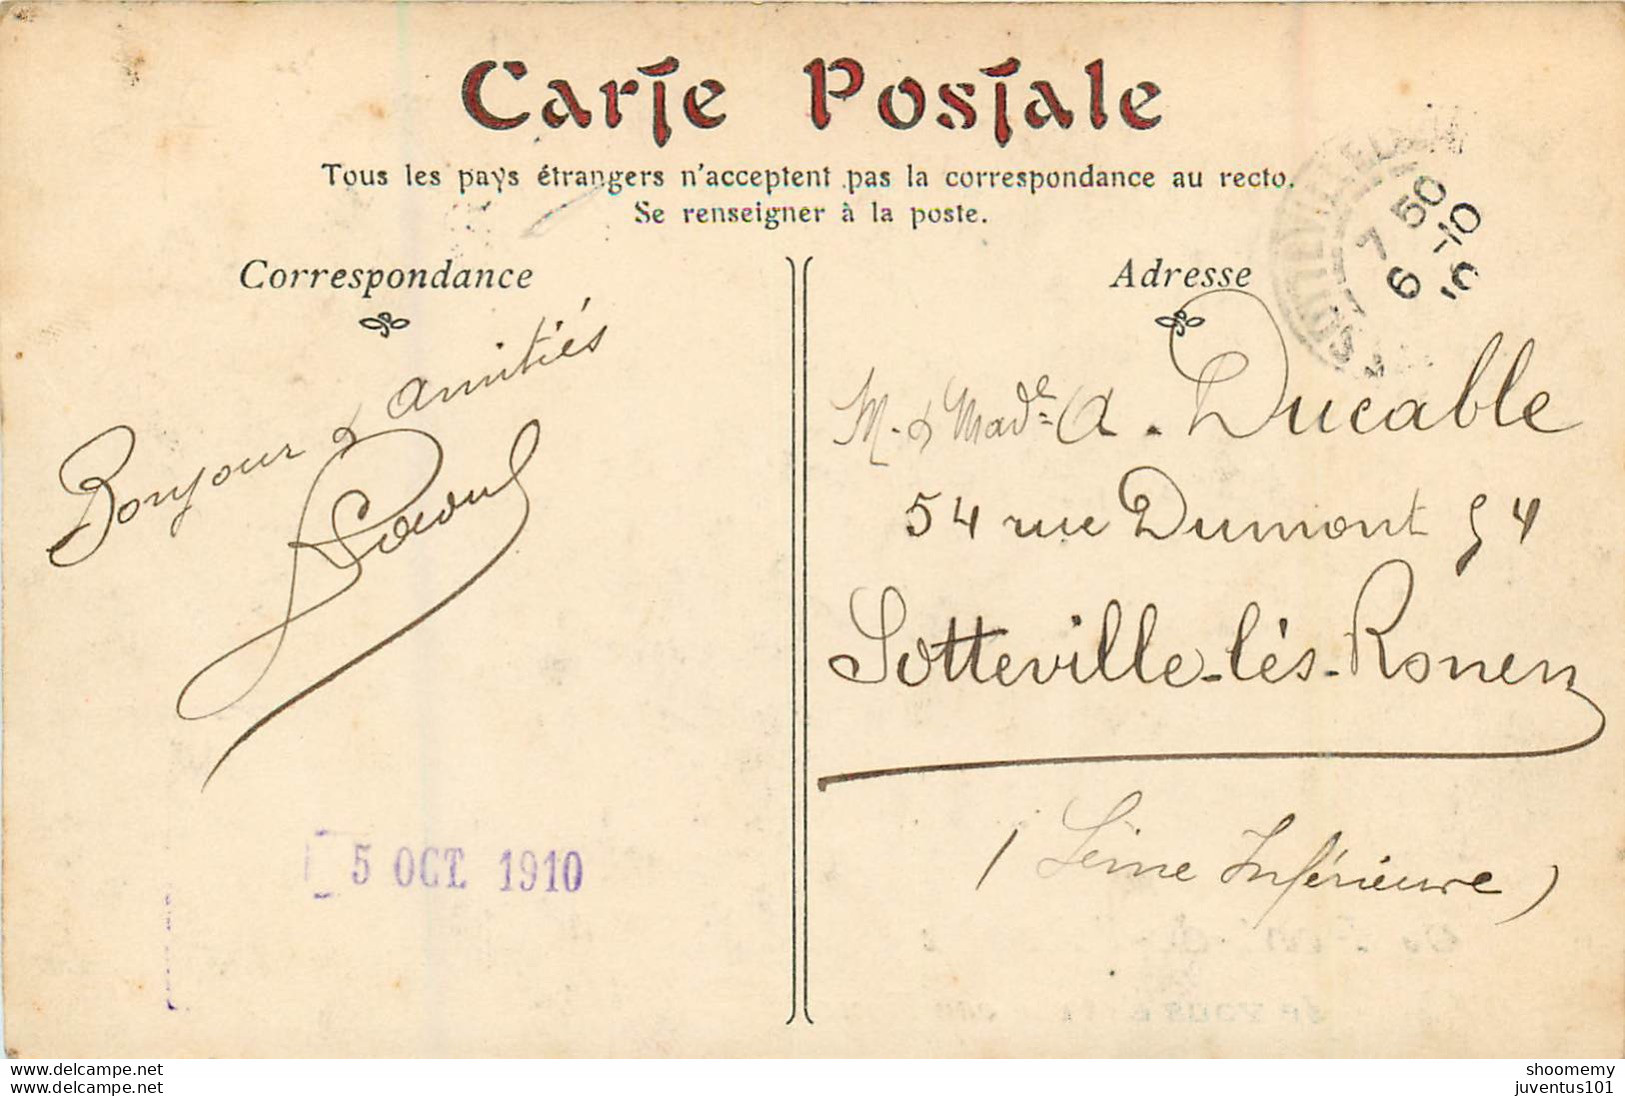 Carte Postale
Tous les pays étrangers n'acceptent pas la correspondance au recto.
Se renseigner à la poste.
Correspondance
Adresse
7 50
6 -10
10
Bonjour & amitiés
Raoul
M. & Mad.e A. Ducable
54 rue Dumont 54
Sotteville-lès-Rouen
(Seine Inférieure)
5 OCT. 1910
www.delcampe.net
www.delcampe.net
shoomemy
juventus101